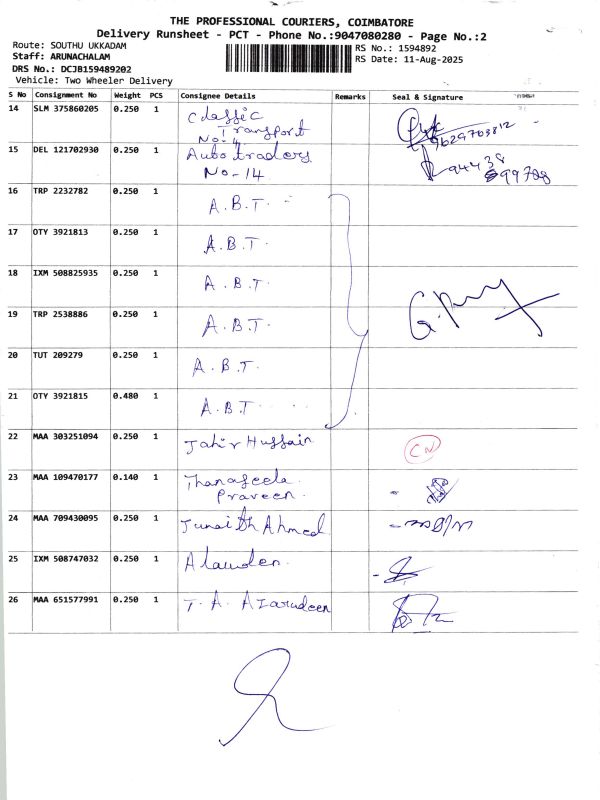 THE PROFESSIONAL COURIERS, COIMBATORE
Delivery Runsheet - PCT - Phone No.:9047080280 - Page No.:2
Route: SOUTHU UKKADAM
RS No.: 1594892
Staff: ARUNACHALAM
RS Date: 11-Aug-2025
DRS No.: DCJB159489202
Vehicle: Two Wheeler Delivery
S No Consignment No Weight PCS Consignee Details Remarks Seal & Signature
14 SLM 375860205 0.250 1 Classic
Transport
No-4
9629763812
15 DEL 121702930 0.250 1 Auto traders
No-14
94438
99788
16 TRP 2232782 0.250 1 A.B.T.
17 OTY 3921813 0.250 1 A.B.T.
18 IXM 508825935 0.250 1 A.B.T.
19 TRP 2538886 0.250 1 A.B.T.
20 TUT 209279 0.250 1 A.B.T.
21 OTY 3921815 0.480 1 A.B.T
22 MAA 303251094 0.250 1 Jahir Hussain CN
23 MAA 109470177 0.140 1 Thanaseela
Praveen.
24 MAA 709430095 0.250 1 Junaith Ahmed
25 IXM 508747032 0.250 1 Alauden.
26 MAA 651577991 0.250 1 T. A. Azarudeen